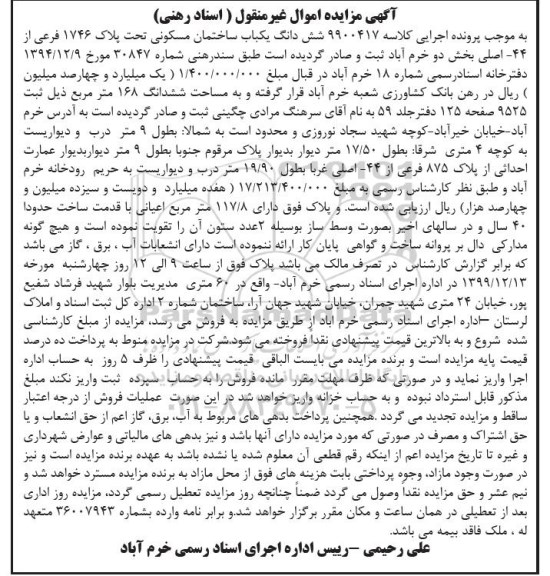 آگهی مزایده اموال غیرمنقول ( اسناد رهنی)
به موجب پرونده اجرایی کلاسه ۹۹۰۰۴۱۷ شش دانگ یکباب ساختمان مسکونی تحت پلاک ۱۷۴۶ فرعی از
۴۴- اصلی بخش دو خرم آباد ثبت و صادر گردیده است طبق سندرهنی شماره ۳۰۸۴۷ مورخ ۱۳۹۴/۱۲/۹
دفترخانه اسنادرسمی شماره ۱۸ خرم آباد در قبال مبلغ ۱/۴۰۰/۰۰۰/۰۰۰ ( یک میلیارد و چهارصد میلیون
) ریال در رهن بانک کشاورزی شعبه خرم آباد قرار گرفته و به مساحت ششدانگ ۱۶۸ متر مربع ذیل ثبت
۹۵۲۵ صفحه ۱۲۵ دفترجلد ۵۹ به نام آقای سرهنگ مرادی چگینی ثبت و صادر گردیده است به آدرس خرم
آباد-خیابان خیرآباد-کوچه شهید سجاد نوروزی و محدود است به شمالا: بطول ۹ متر  درب  و دیواریست
به کوچه ۴ متری  شرقا: بطول ۱۷/۵۰ متر دیوار بدیوار پلاک مرقوم جنوبا بطول ۹ متر دیواربدیوار عمارت
احداثی از پلاک ۸۷۵ فرعی از ۴۴- اصلی غربا بطول ۱۹/۹۰ متر درب و دیواریست به حریم  رودخانه خرم
آباد و طبق نظر کارشناس رسمی به مبلغ ۱۷/۲۱۳/۴۰۰/۰۰۰ ( هفده میلیارد  و دویست و سیزده میلیون و
چهارصد هزار) ریال ارزیابی شده است. و پلاک فوق دارای ۱۱۷/۸ متر مربع اعیانی با قدمت ساخت حدودا
۴۰ سال و در سالهای اخیر بصورت وسط ساز بوسیله ۲عدد ستون آن را تقویت نموده است و هیچ گونه
مدارکی  دال بر پروانه ساخت و گواهی  پایان کار ارائه ننموده است دارای انشعابات آب ، برق ، گاز می باشد
که برابر گزارش کارشناس  در تصرف مالک می باشد پلاک فوق از ساعت ۹ الی ۱۲ روز چهارشنبه  مورخه
۱۳۹۹/۱۲/۱۳ در اداره اجرای اسناد رسمی خرم آباد- واقع در ۶۰ متری  مدیریت بلوار شهید فرشاد شفیع
پور، خیابان ۲۴ متری شهید چمران، خیابان شهید جهان آرا، ساختمان شماره ۲ اداره کل ثبت اسناد و املاک
لرستان –اداره اجرای اسناد رسمی خرم اباد از طریق مزایده به فروش می رسد، مزایده از مبلغ کارشناسی
شده  شروع و به بالاترین قیمت پیشنهادی نقدا فروخته می شود.شرکت در مزایده منوط به پرداخت ده درصد
قیمت پایه مزایده است و برنده مزایده می بایست الباقی  قیمت پیشنهادی را ظرف ۵ روز  به حساب اداره
اجرا واریز نماید و در صورتی که ظرف مهلت مقرر  مانده فروش را به حساب  سپرده  ثبت واریز نکند مبلغ
مذکور قابل استرداد نبوده  و به حساب خزانه واریز خواهد شد در این صورت  عملیات فروش از درجه اعتبار
ساقط و مزایده تجدید می گردد .همچنین پرداخت بدهی های مربوط به آب، برق، گاز اعم از حق انشعاب و یا
حق اشتراک و مصرف در صورتی که مورد مزایده دارای آنها باشد و نیز بدهی های مالیاتی و عوارض شهرداری
و غیره تا تاریخ مزایده اعم از اینکه رقم قطعی آن معلوم شده یا نشده باشد به عهده برنده مزایده است و نیز
در صورت وجود مازاد، وجوه پرداختی بابت هزینه های فوق از محل مازاد به برنده مزایده مسترد خواهد شد و
نیم عشر و حق مزایده نقداً وصول می گردد ضمناً چنانچه روز مزایده تعطیل رسمی گردد، مزایده روز اداری
بعد از تعطیلی در همان ساعت و مکان مقرر برگزار خواهد شد.و برابر نامه وارده بشماره ۳۶۰۰۷۹۴۳ متعهد
له ، ملک فاقد بیمه می باشد.
علی رحیمی –رییس اداره اجرای اسناد رسمی خرم آباد